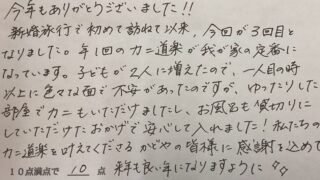 今年もありがとうございました!!
新婚旅行で初めて訪ねて以来、今回が3回目と
なりました。年1回のカニ道楽が我が家の定番に
なっています。子どもが2人に増えたので、一人目の時
以上に色々な面で不安があったのですが、ゆったりした
部屋でカニもいただけましたし、お風呂も貸切りに
していただいたおかげで安心して入れました!私たちの
カニ道楽を叶えてくださる かどやの皆様に感謝を込めて
10点満点で 10 点 来年も良い年になりますように